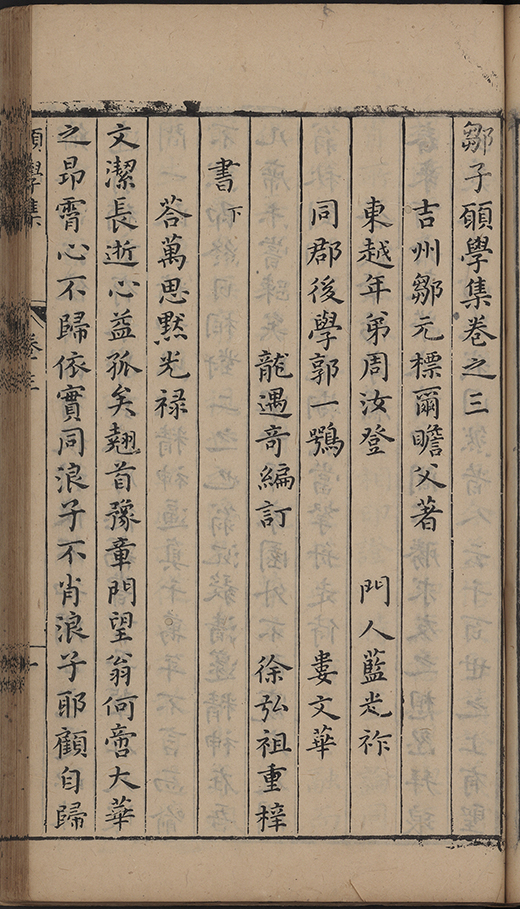 鄒子願學集卷之三
吉州鄒元標爾瞻父著
東越年弟周汝登　門人藍光祚
同郡後學郭一鶚　婁文華
龍遇奇編訂　徐弘祖重梓
書下
荅萬思默光祿
文潔長逝心益孤矣翹首豫章門望翁何啻大華
之昻霄心不歸依實同浪子不肖浪子耶顧自歸
願學集　卷三　一